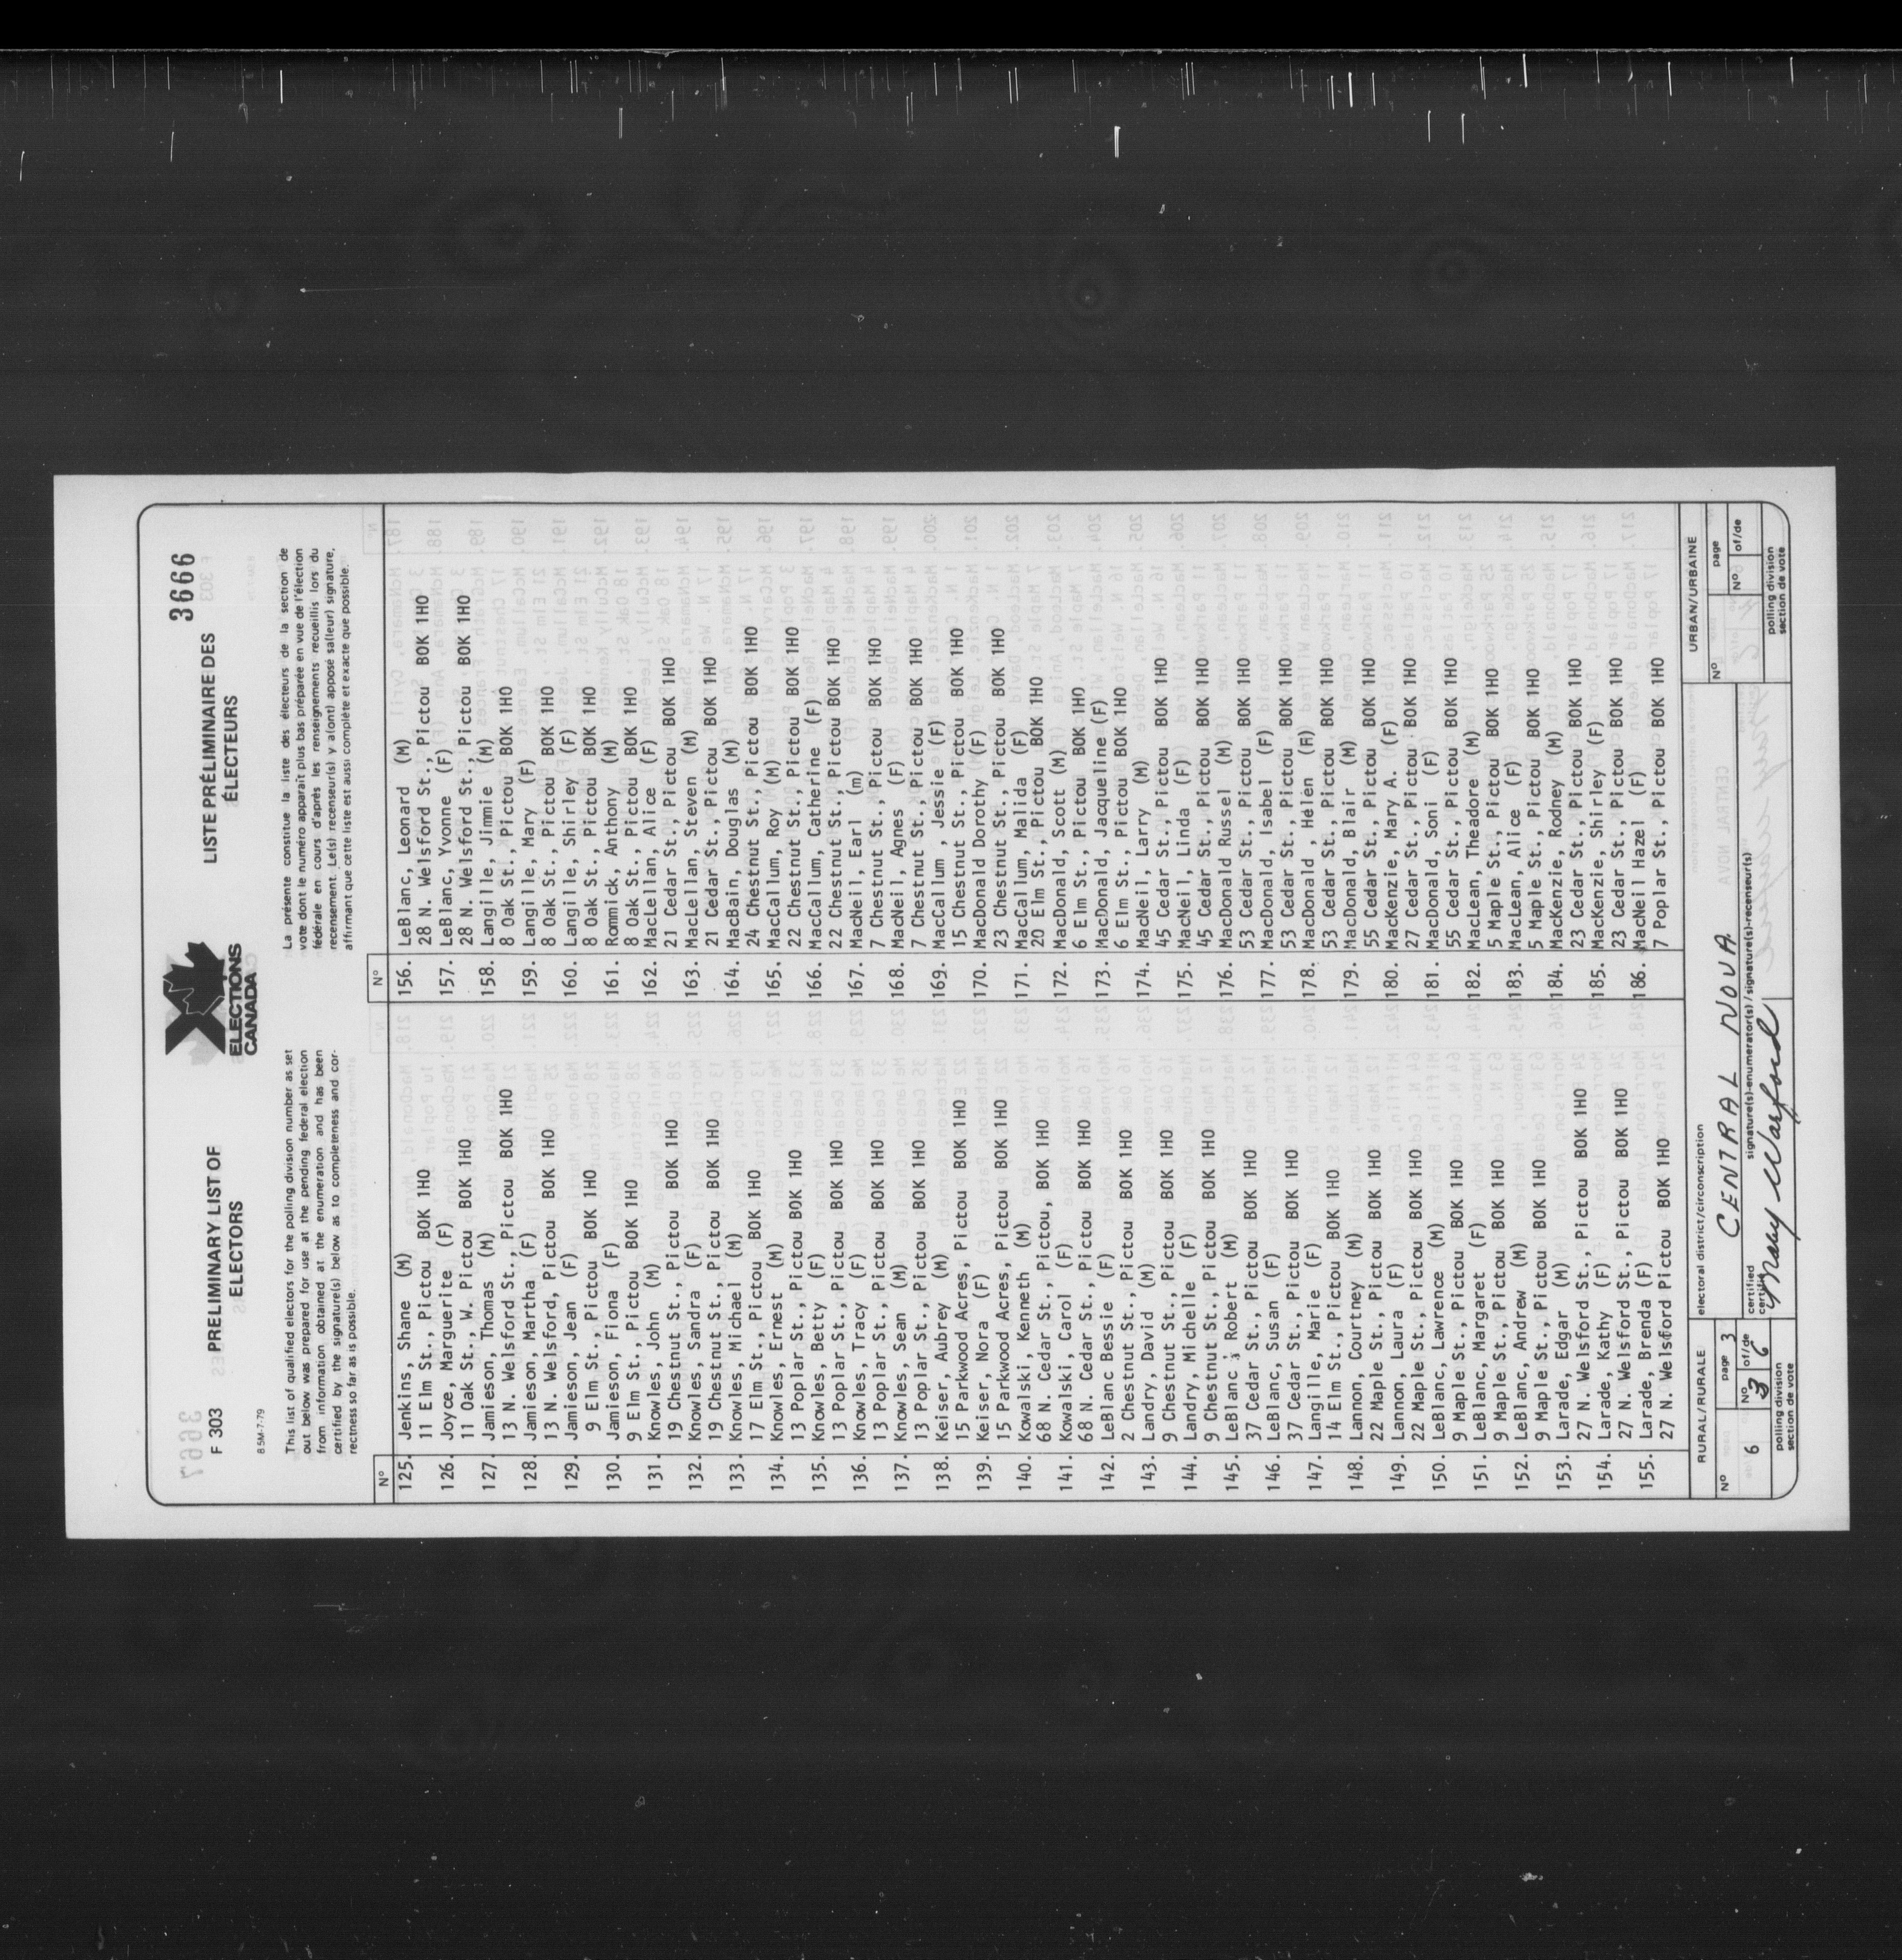 3666
F 303 PRELIMINARY LIST OF ELECTORS
ELECTIONS CANADA
LISTE PRÉLIMINAIRE DES ÉLECTEURS
85M-7-79
This list of qualified electors for the polling division number as set
out below was prepared for use at the pending federal election
from information obtained at the enumeration and has been
certified by the signature(s) below as to completeness and cor-
rectness so far as is possible.
La présente constitue la liste des électeurs de la section de
vote dont le numéro apparaît plus bas préparée en vue de l'élection
fédérale en cours d'après les renseignements recueillis lors du
recensement. Le(s) recenseur(s) y a(ont) apposé sa(leur) signature,
affirmant que cette liste est aussi complète et exacte que possible.
Nº
125. Jenkins, Shane (M)
11 Elm St., Pictou BOK 1HO
126. Joyce, Marguerite (F)
11 Oak St., W. Pictou BOK 1HO
127. Jamieson, Thomas (M)
13 N. Welsford St., Pictou BOK 1HO
128. Jamieson, Martha (F)
13 N. Welsford, Pictou BOK 1HO
129. Jamieson, Jean (F)
9 Elm St., Pictou BOK 1HO
130. Jamieson, Fiona (F)
9 Elm St., Pictou BOK 1HO
131. Knowles, John (M)
19 Chestnut St., Pictou BOK 1HO
132. Knowles, Sandra (F)
19 Chestnut St., Pictou BOK 1HO
133. Knowles, Michael (M)
17 Elm St., Pictou BOK 1HO
134. Knowles, Ernest (M)
13 Poplar St., Pictou BOK 1HO
135. Knowles, Betty (F)
13 Poplar St., Pictou BOK 1HO
136. Knowles, Tracy (F)
13 Poplar St., Pictou BOK 1HO
137. Knowles, Sean (M)
13 Poplar St., Pictou BOK 1HO
138. Keiser, Aubrey (M)
15 Parkwood Acres, Pictou BOK 1HO
139. Keiser, Nora (F)
15 Parkwood Acres, Pictou BOK 1HO
140. Kowalski, Kenneth (M)
68 N. Cedar St., Pictou, BOK 1HO
141. Kowalski, Carol (F)
68 N. Cedar St., Pictou BOK 1HO
142. LeBlanc Bessie (F)
2 Chestnut St., Pictou BOK 1HO
143. Landry, David (M)
9 Chestnut St., Pictou BOK 1HO
144. Landry, Michelle (F)
9 Chestnut St., Pictou BOK 1HO
145. LeBlanc, Robert (M)
37 Cedar St., Pictou BOK 1HO
146. LeBlanc, Susan (F)
37 Cedar St., Pictou BOK 1HO
147. Langille, Marie (F)
14 Elm St., Pictou BOK 1HO
148. Lannon, Courtney (M)
22 Maple St., Pictou BOK 1HO
149. Lannon, Laura (F)
22 Maple St., Pictou BOK 1HO
150. LeBlanc, Lawrence (M)
9 Maple St., Pictou BOK 1HO
151. LeBlanc, Margaret (F)
9 Maple St., Pictou BOK 1HO
152. LeBlanc, Andrew (M)
9 Maple St., Pictou BOK 1HO
153. Larade, Edgar (M)
27 N. Welsford St., Pictou BOK 1HO
154. Larade, Kathy (F)
27 N. Welsford St., Pictou BOK 1HO
155. Larade, Brenda (F)
27 N. Welsford Pictou BOK 1HO
Nº
156. LeBlanc, Leonard (M)
28 N. Welsford St., Pictou BOK 1HO
157. LeBlanc, Yvonne (F)
28 N. Welsford St., Pictou BOK 1HO
158. Langille, Jimmie (M)
8 Oak St., Pictou BOK 1HO
159. Langille, Mary (F)
8 Oak St., Pictou BOK 1HO
160. Langille, Shirley (F)
8 Oak St., Pictou BOK 1HO
161. Rommick, Anthony (M)
8 Oak St., Pictou BOK 1HO
162. MacLellan, Alice (F)
21 Cedar St., Pictou BOK 1HO
163. MacLellan, Steven (M)
21 Cedar St., Pictou BOK 1HO
164. MacBain, Douglas (M)
24 Chestnut St., Pictou BOK 1HO
165. MacCallum, Roy (M)
22 Chestnut St., Pictou BOK 1HO
166. MacCallum, Catherine (F)
22 Chestnut St., Pictou BOK 1HO
167. MacNeil, Earl (m)
7 Chestnut St., Pictou BOK 1HO
168. MacNeil, Agnes (F)
7 Chestnut St., Pictou BOK 1HO
169. MacCallum , Jessie (F)
15 Chestnut St., Pictou BOK 1HO
170. MacDonald Dorothy (F)
23 Chestnut St., Pictou BOK 1HO
171. MacCallum, Malida (F)
20 Elm St., Pictou BOK 1HO
172. MacDonald, Scott (M)
6 Elm St., Pictou BOK 1HO
173. MacDonald, Jacqueline (F)
6 Elm St., Pictou BOK 1HO
174. MacNeil, Larry (M)
45 Cedar St., Pictou BOK 1HO
175. MacNeil, Linda (F)
45 Cedar St., Pictou BOK 1HO
176. MacDonald Russel (M)
53 Cedar St., Pictou BOK 1HO
177. MacDonald, Isabel (F)
53 Cedar St., Pictou BOK 1HO
178. MacDonald , Helen (F)
53 Cedar St., Pictou BOK 1HO
179. MacDonald, Blair (M)
55 Cedar St., Pictou BOK 1HO
180. MacKenzie, Mary A. (F)
27 Cedar St., Pictou BOK 1HO
181. MacDonald, Soni (F)
55 Cedar St., Pictou BOK 1HO
182. MacLean, Theadore (M)
5 Maple St., Pictou BOK 1HO
183. MacLean, Alice (F)
5 Maple St., Pictou BOK 1HO
184. MacKenzie, Rodney (M)
23 Cedar St., Pictou BOK 1HO
185. MacKenzie, Shirley (F)
23 Cedar St., Pictou BOK 1HO
186. MacNeil Hazel (F)
7 Poplar St., Pictou BOK 1HO
RURAL/RURALE
Nº 6
page 3
Nº 3 of/de 6
polling division
section de vote
electoral district/circonscription
CENTRAL NOVA
certified
certifié
signature(s)-enumerator(s)/signature(s)-recenseur(s)
Mary Warford
URBAN/URBAINE
Nº
page
Nº of/de
polling division
section de vote